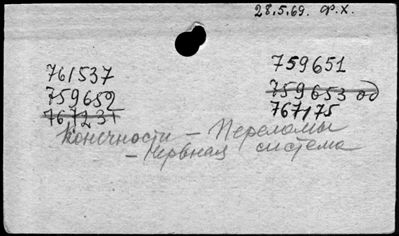 28.5.69. Ф.Х.
761537
759652
767237
759651
759653 од
767175
Конечности – Переломы
– Нервная система